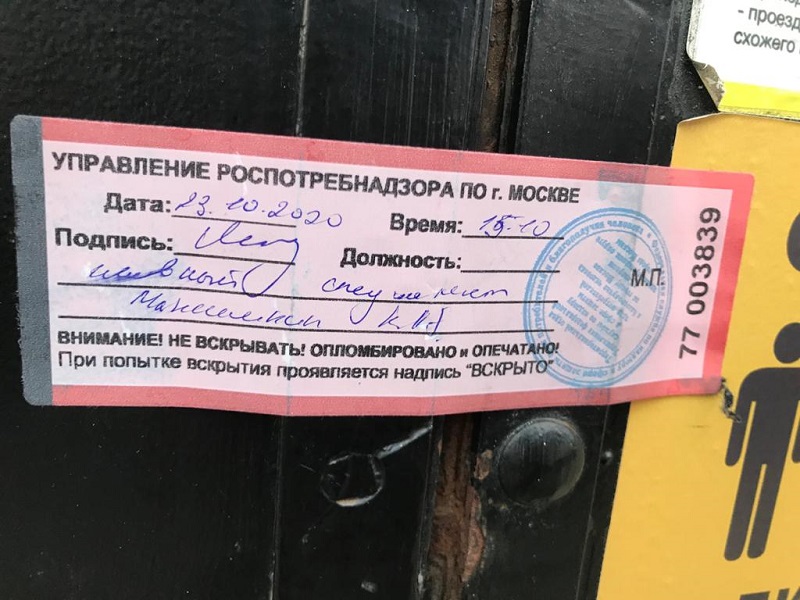 - проезд
схожего
УПРАВЛЕНИЕ РОСПОТРЕБНАДЗОРА ПО г. МОСКВЕ
Дата: 23.10.2020 Время: 15:10
Подпись: Должность:
главный специалист
М.П.
77 003839
ВНИМАНИЕ! НЕ ВСКРЫВАТЬ! ОПЛОМБИРОВАНО и ОПЕЧАТАНО!
При попытке вскрытия проявляется надпись "ВСКРЫТО"